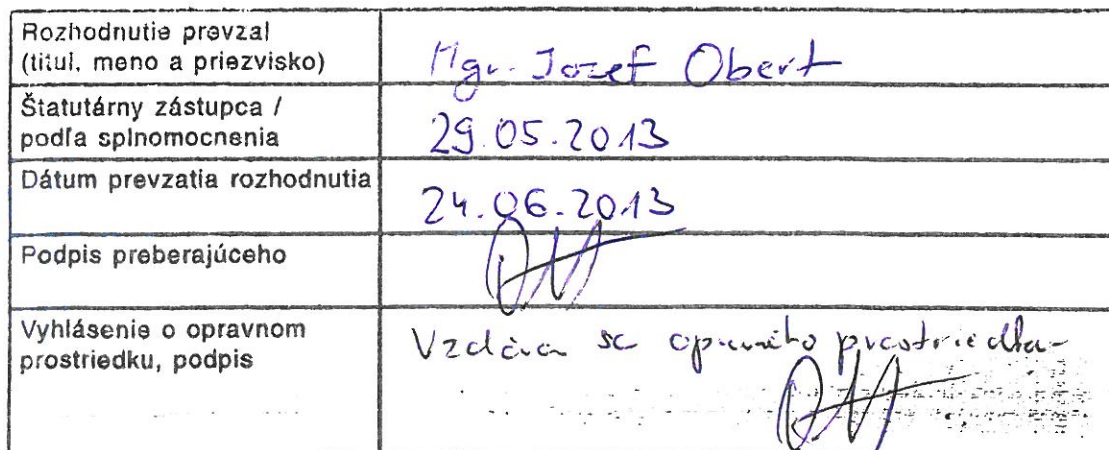 Rozhodnutie prevzal
(titul, meno a priezvisko)
Mgr. Jozef Obert
Štatutárny zástupca /
podľa splnomocnenia
29.05.2013
Dátum prevzatia rozhodnutia
24.06.2013
Podpis preberajúceho
Vyhlásenie o opravnom
prostriedku, podpis
sa prostriedku